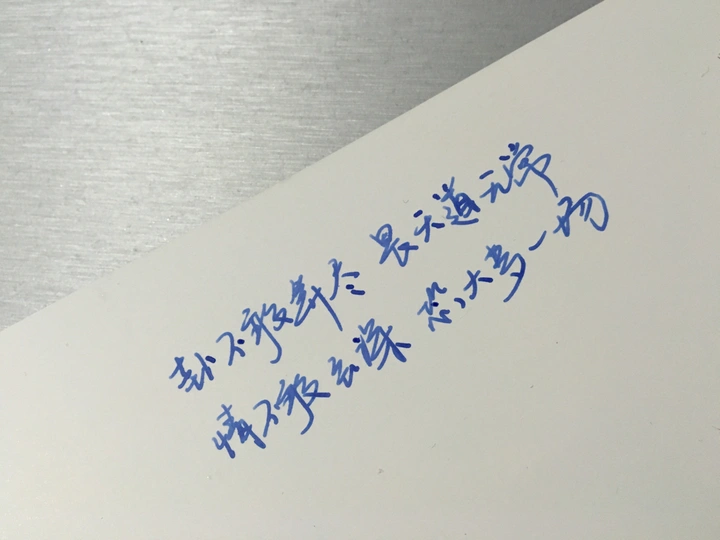 卦不敢算尽 畏天道无常
情不敢至深 恐大梦一场